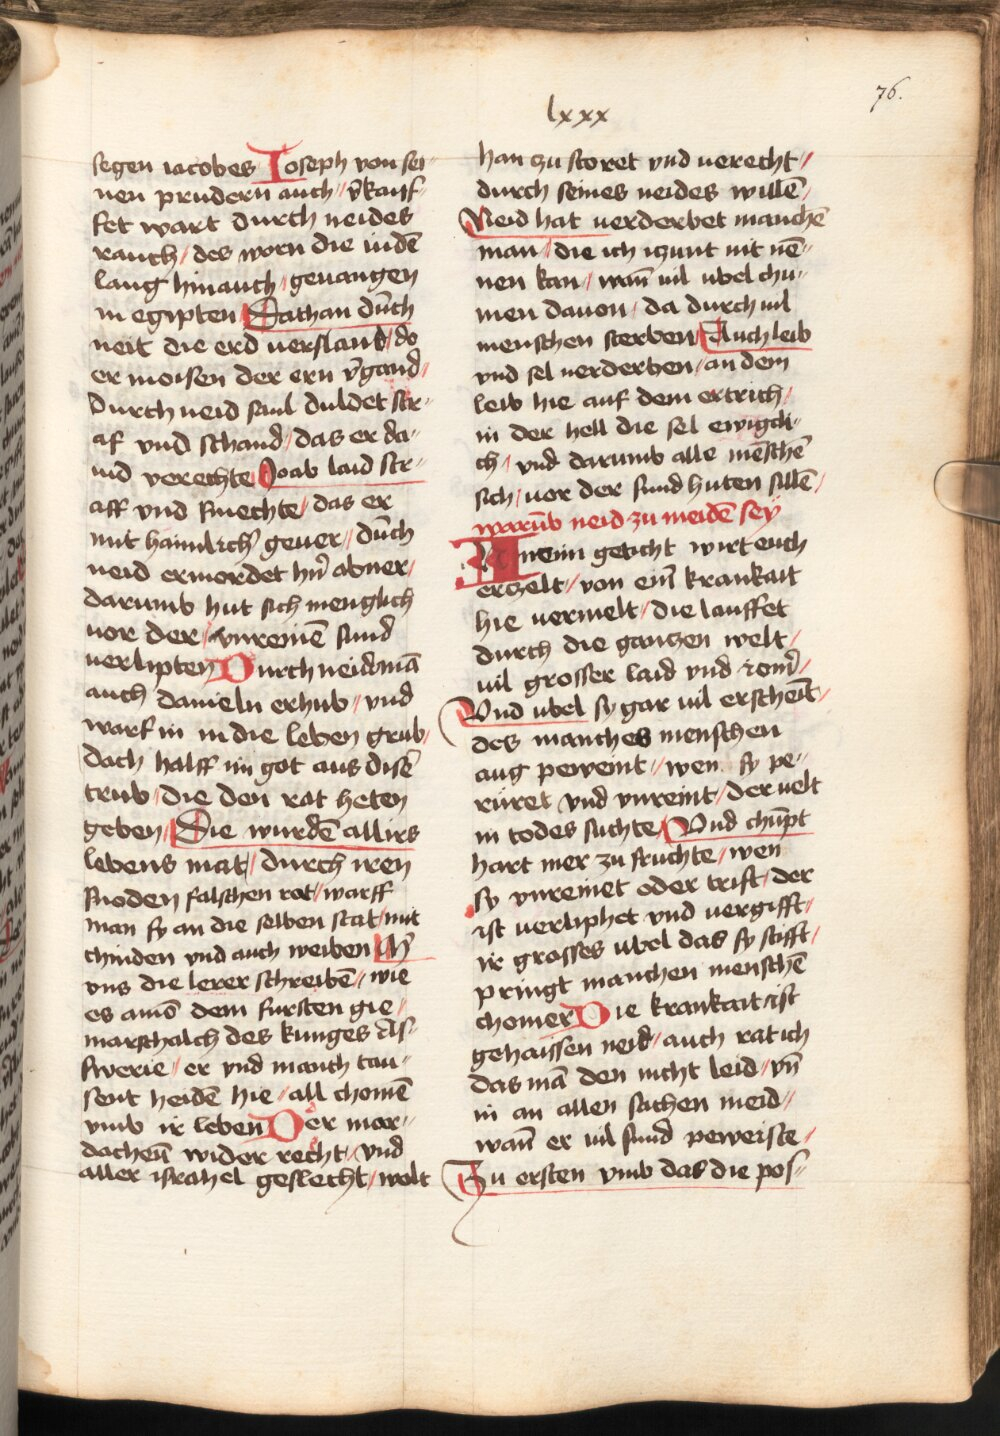 76.
lxxx
segen iacobes Ioseph von sei-
nen prudern auch / v̓kauf-
fet wart durch neides
rauch / des worn die iudē
lang hinauch / geuangen
in egipten Sathan durch
neit die erd verslant / do
er moisen der ern v̓gand /
Durch neid saul duldet str-
af vnd schand / das er da-
uid verechte Joab laid str-
aff vnd knechte / das er
mit haimlich̓ geuer / durch
neid ermordet hn̄ abner /
darumb hut sich menglich
vor der / vnreinē sund
uerlipten Durch neid mā
auch danieln erhub / vnd
warf in in die leben grub /
Dach halff im got aus disē
trub / die den rat heten
geben / Die wurdē all irs
lebens mat / durch iren
snoden falschen rot / warff
man sy an die selben stat / mit
chinden vnd auch weiben
vns die lerer schreibē / wie
es amō dem fursten gie /
marschalch des kunges As-
swerie / er vnd manch tau-
sent heidē hie / all chomē
vmb ir leben Der mar-
docheū wider recht / vnd
aller israhel geslecht / wolt
han zu storet vnd uerecht /
durch seines neides willē
Neid hat verderbet manchē
man / die ich izunt nit nē-
nen kan / wan̄ uil ubel chu-
men dauon / da durch uil
menschen sterben / Auch leib
vnd sel uerderben / an dem
leib hie auf dem ertrich /
in der hell die sel ewigcli-
ch / vnd darumb alle mēschē
sich / uor der sund huten sillē /
warūb neid zu meidē sey
In einn geticht wirt euch
erczelt / von ein̄ krankait
hie uermelt / die lauffet
durch die ganczen welt /
uil grosser laid vnd iom̄ /
Vnd ubel sy gar uil erscheīt /
des manches menschen
aug peweint / wen sy pe-
rüret vnd vnreint / der velt
in todes suchte / Vnd chūpt
hart mer zu fruchte / wen
sy vnreinet oder trift / der
ist uerliphet vnd uergifft /
ir grosses ubel das sy stifft /
pringt manchen menschē
chomer Die krankait ist
gehaissen neid / auch rat ich
das mā den nicht leid / vn̄
in an allen sachen meid /
wan̄ er uil sund peweiste /
Zu ersten vmb das die pos-